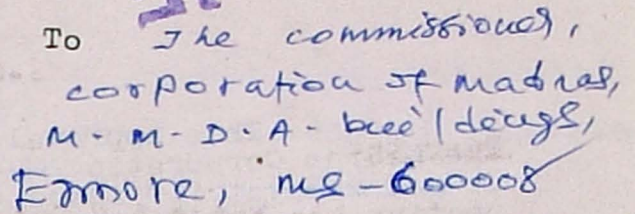 To The commissioner,
corporation of madras,
M. M. D. A.
Egmore, ms-600008